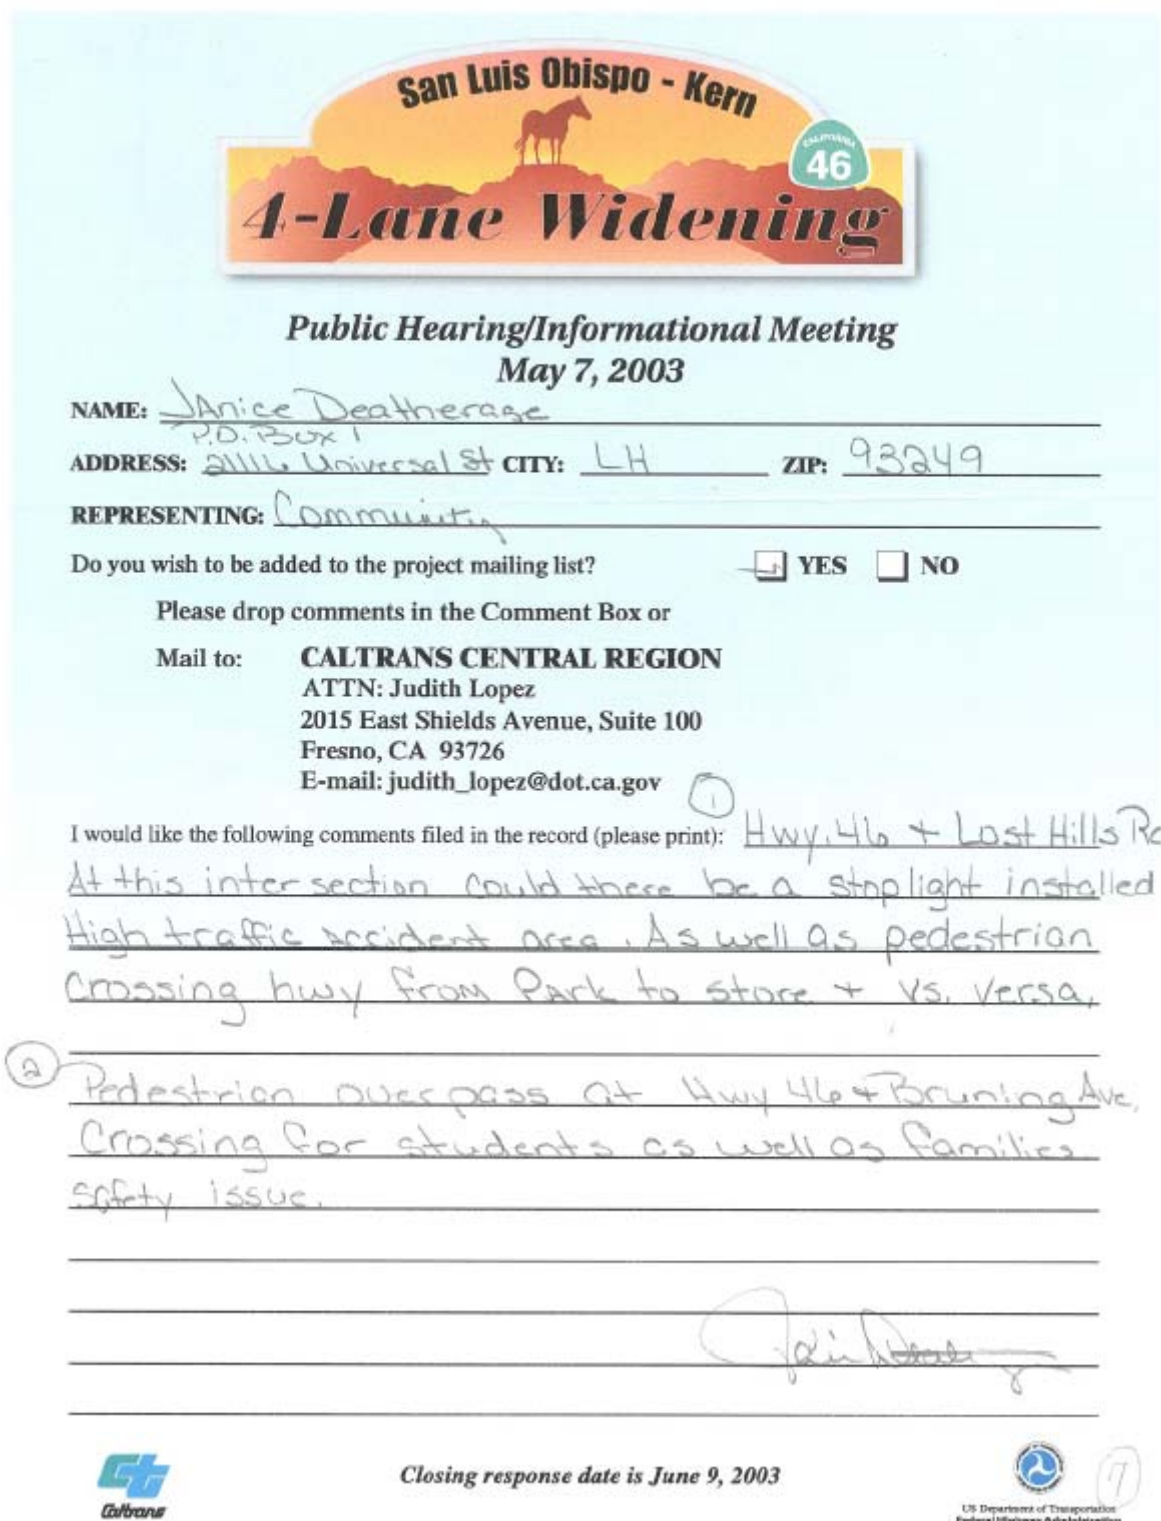 San Luis Obispo - Kern
CALIFORNIA
46
4-Lane Widening
Public Hearing/Informational Meeting
May 7, 2003
NAME: JAnice Deatherage
P.O. Box 1
ADDRESS: 21116 Universal St CITY: LH ZIP: 93249
REPRESENTING: Community
Do you wish to be added to the project mailing list? YES NO
Please drop comments in the Comment Box or
Mail to: CALTRANS CENTRAL REGION
ATTN: Judith Lopez
2015 East Shields Avenue, Suite 100
Fresno, CA 93726
E-mail: judith_lopez@dot.ca.gov
1
I would like the following comments filed in the record (please print): Hwy. 46 + Lost Hills Rd
At this intersection could there be a stoplight installed
High traffic accident area. As well as pedestrian
Crossing hwy from Park to store + vs. versa.
2
Pedestrian overpass at Hwy 46 + Bruning Ave.
Crossing for students as well as families
safety issue.
Caltrans
Closing response date is June 9, 2003
US Department of Transportation
Federal Highway Administration
7